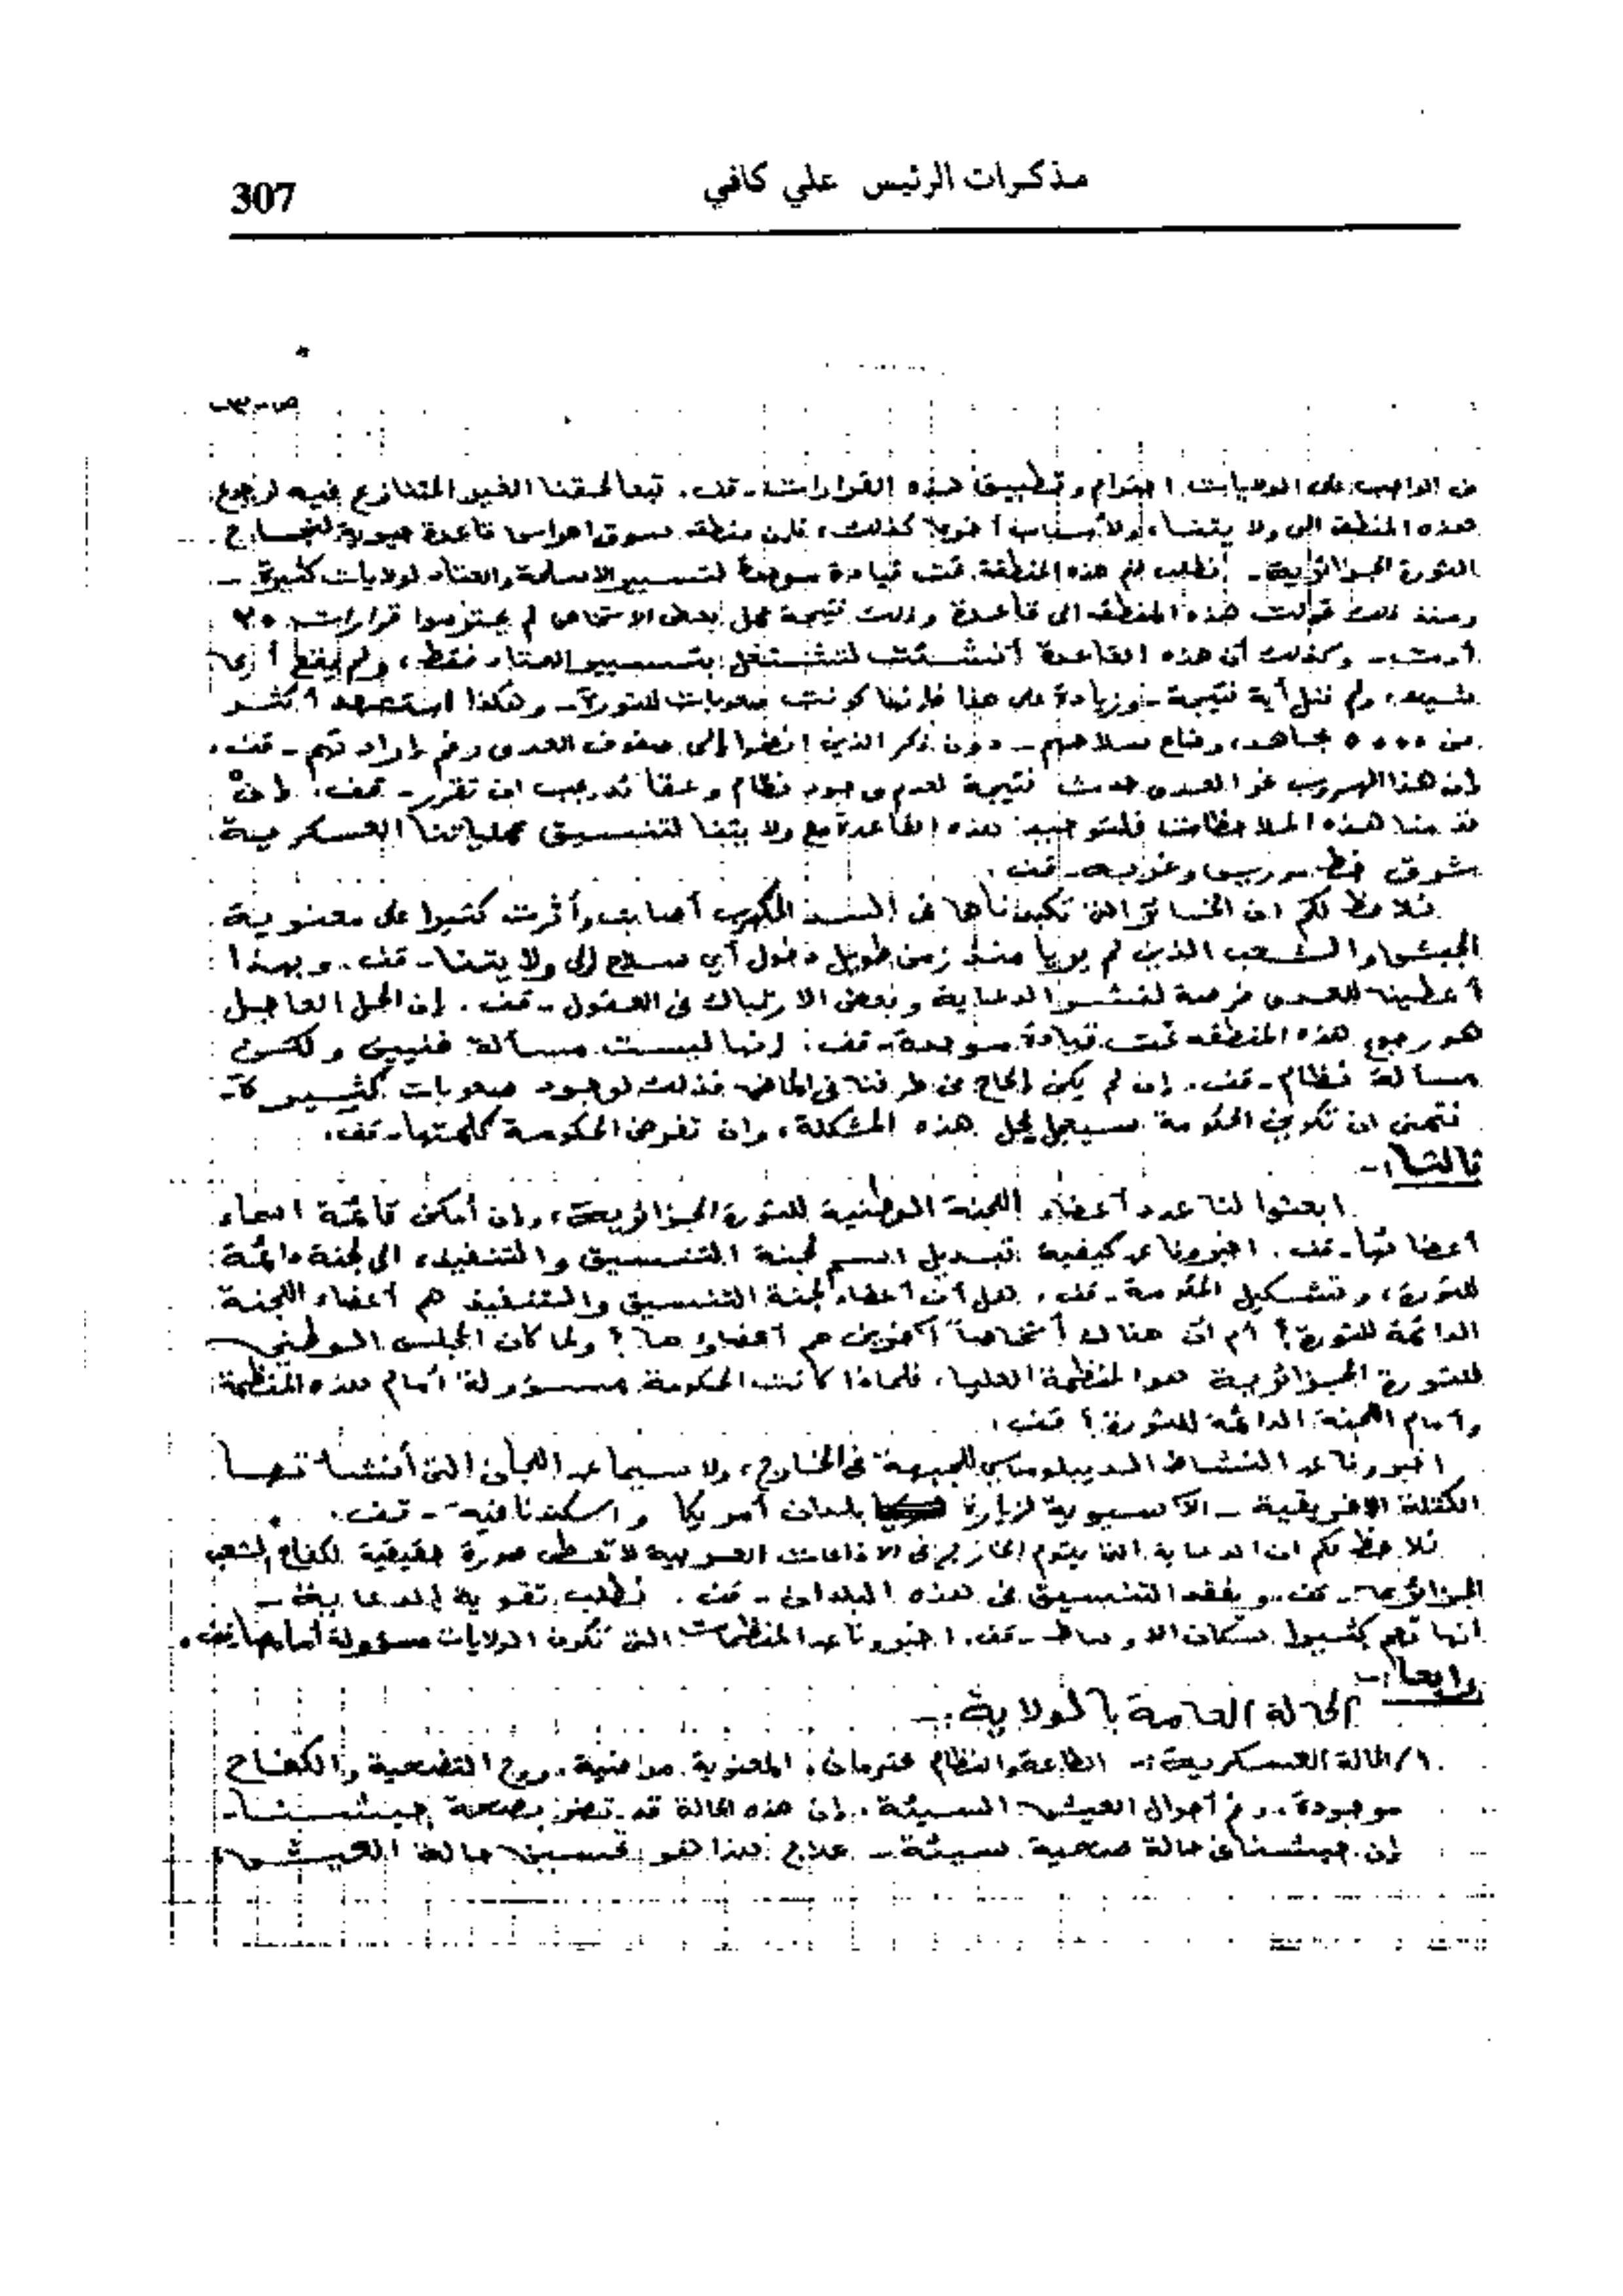 مذكرات الرئيس علي كافي
307
ص-٣-
من الواجب على الولايات احترام وتطبيق هذه القرارات - قف. تبعا لحقنا الغير المتنازع فيه لرجوع
هذه المنطقة الى ولايتنا، ولأسباب أخرى كذلك، فإن منطقة سوق اهراس قاعدة حيوية لنجاح
الثورة الجزائرية - نطلب ضم هذه المنطقة تحت قيادة موحدة لتسيير الاسلحة والعتاد لولايات كثيرة -
ومنذ ذلك تحولت هذه المنطقة الى قاعدة وذلك نتيجة عمل بعض الاشخاص لم يحترموا قرارات ٢٠
أوت - وكذلك أن هذه القاعدة أنشئت لتشتغل بتسيير العتاد فقط، ولم يقع أي
شيء، ولم ننل أية نتيجة - وزيادة على هذا فإنها كونت صعوبات للثورة - وهكذا استشهد أكثر
من ٥٠٠٠ مجاهد، وضاع سلاحهم - دون ذكر الذين انضموا إلى صفوف العدو رغم إرادتهم - قف.
إن هذا الهروب نحو العدو حدث نتيجة لعدم وجود نظام وحقا قد يجب ان تقرر - قف. إذن
قدمنا هذه الملاحظات فلتوحيد هذه القاعدة مع ولايتنا لتنسيق عملياتنا العسكرية
شرق خط موريس وغربه - قف.
نلاحظ لكم ان الخسائر التي تكبدناها في السد المكهرب أصابت وأثرت كثيرا على معنوية
الجيش والشعب الذين لم يريا منذ زمن طويل دخول أي سلاح إلى ولايتنا - قف. وبهذا
أعطينا للعدو فرصة لنشر الدعاية وبعض الارتباك في العقول - قف. إن الحل العاجل
هو رجوع هذه المنطقة تحت قيادة موحدة - قف. إنها ليست مسألة فنيين ولكن
مسألة نظام - قف. إن لم يكن إلحاح من طرفنا في الماضي فذلك لوجود صعوبات كثيرة -
نتمنى ان تكوين الحكومة سيعجل بحل هذه المشكلة، وان تفرض الحكومة كلمتها - قف.
ثالثا :-
ابعثوا لنا عدد أعضاء اللجنة الوطنية للثورة الجزائرية، وإن أمكن قائمة اسماء
أعضائها - قف. اخبرونا عن كيفية تبديل اسم لجنة التنسيق والتنفيذ، الى لجنة دائمة
للثورة، وتشكيل الحكومة - قف. هل أن أعضاء لجنة التنسيق والتنفيذ هم أعضاء اللجنة
الدائمة للثورة؟ أم أن هناك أشخاصا آخرين هم أعضاؤها؟ ولما كان المجلس الوطني
للثورة الجزائرية هو المنظمة العليا، فلماذا كانت الحكومة مسؤولة أمام هذه المنظمة
وأمام اللجنة الدائمة للثورة؟ قف.
اخبرونا عن النشاط الديبلوماسي للجبهة في الخارج، ولا سيما عن اللجان التي أنشأتها
الكتلة الافريقية - الآسيوية لزيارة بلدان أمريكا واسكندنافية - قف.
نلاحظ لكم ان الدعاية التي يقوم بها في الاذاعات العربية لا تعطي صورة حقيقية لكفاح الشعب
الجزائري - قف. ويفقد التنسيق في هذه البلدان - قف. نطلب تقوية الدعاية -
انها تهم كثيرا سكان الاوساط - قف. اخبرونا عن المنظمات التي تكون الولايات مسؤولة أمامها قف.
رابعا :-
الحالة العامة بالولاية :-
١/ الحالة العسكرية :- الطاعة والنظام محترمان. المعنوية مرضية. روح التضحية والكفاح
موجودة. رغم أحوال العيش السيئة. إن هذه الحالة قد تضر بصحة جيشنا.
إن جيشنا في حالة صحية سيئة - علاج هذا هو تحسين حالة العيش